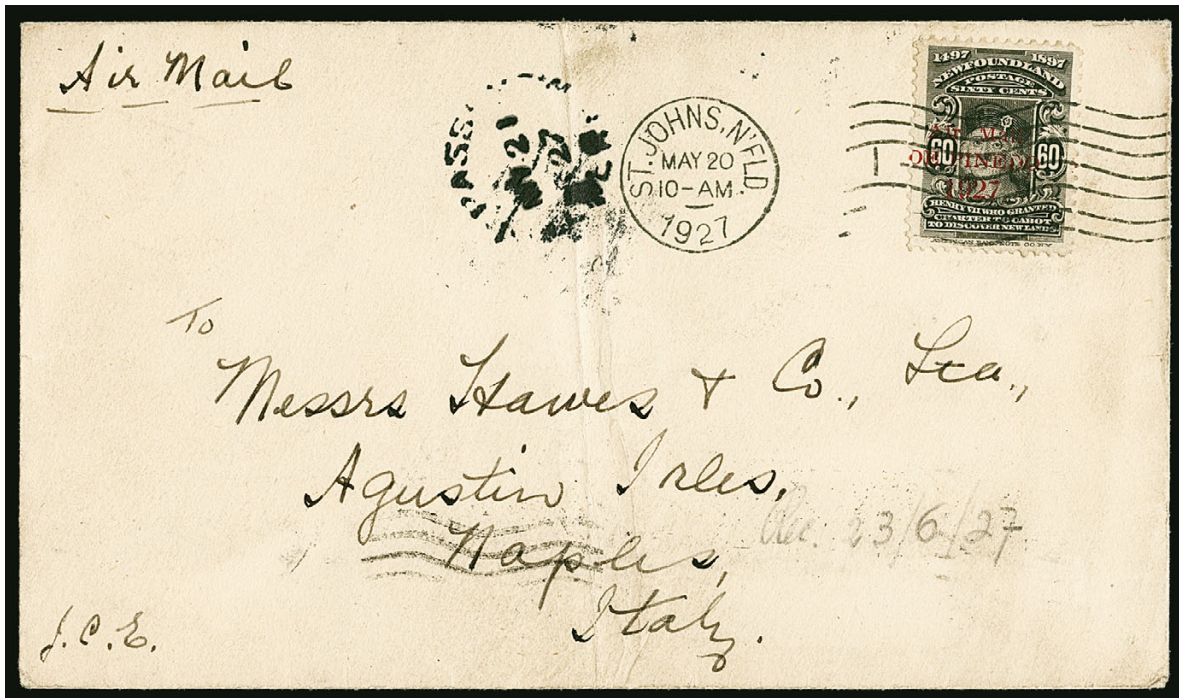 Air Mail
ST. JOHNS, N'FLD
MAY 20
10-AM.
1927
1497 1897
NEWFOUNDLAND
POSTAGE
SIXTY CENTS
60 60
AIR MAIL
DE PINEDO
1927
HENRY VII WHO GRANTED
CHARTER TO CABOT
TO DISCOVER NEW LANDS
21
27
To
Messrs Hawes & Co.,
Agustin Irles,
Naples,
Italy.
Rec. 23/6/27
J.C.E.